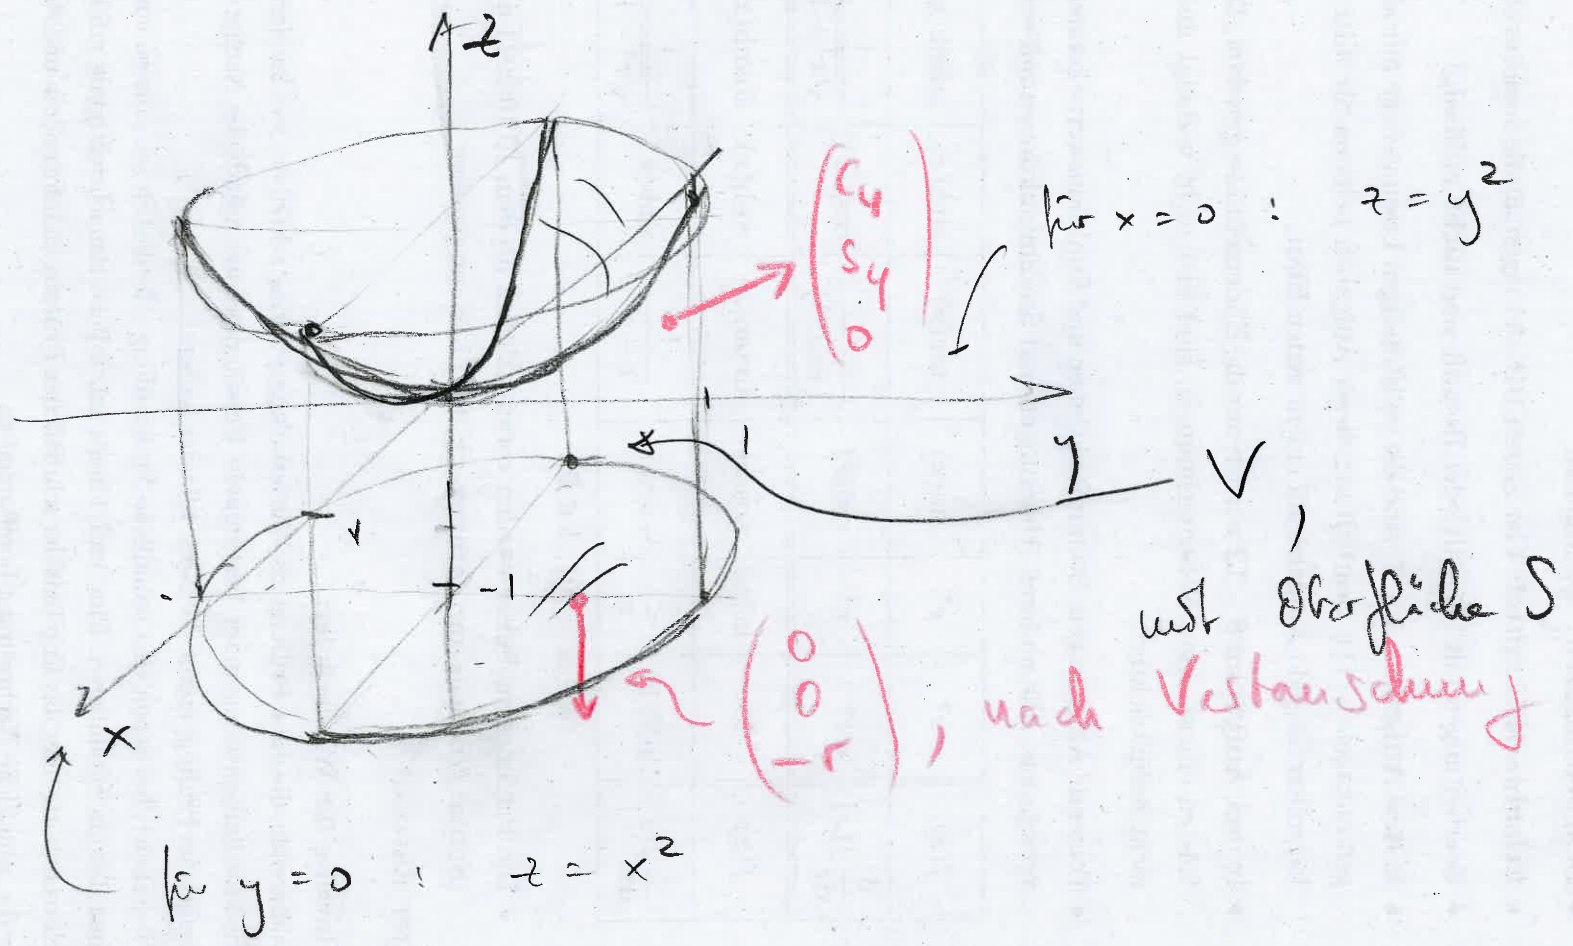 z
für x = 0 : z = y²
(
cφ
sφ
0
)
1
1
y
V ,
1
-1
mit Oberfläche S
(
0
0
-r
) , nach Vertauschung
x
für y = 0 : z = x²